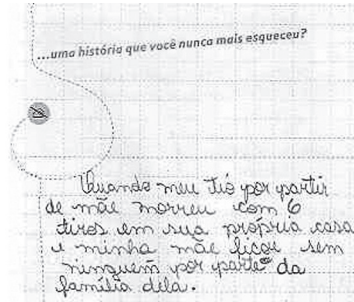 ...uma história que você nunca mais esqueceu?
Quando meu tio por partir
de mãe morreu com 6
tiros em sua própria casa
e minha mãe ficou sem
ninguem por parte da
família dela.